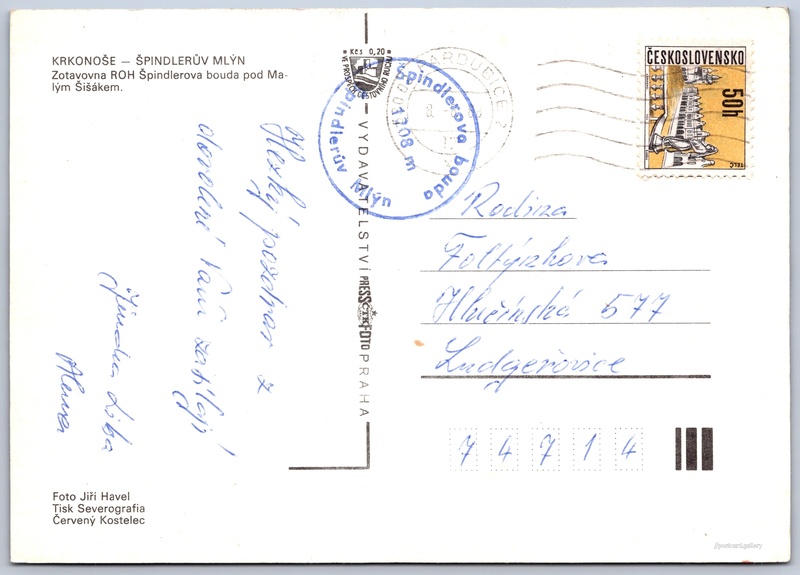 KRKONOŠE — ŠPINDLERŮV MLÝN
Zotavovna ROH Špindlerova bouda pod Ma-
lým Šišákem.
Hezký pozdrav z
dovolené Vám zasílají
Jindra Liba
Alena
Foto Jiří Havel
Tisk Severografia
Červený Kostelec
Kčs 0,20
VE PROSPĚCH CESTOVNÍHO RUCHU
VYDAVATELSTVÍ PRESSFOTO PRAHA
ČTK
Špindlerova bouda
1208 m
Špindlerův Mlýn
PARDUBICE 2
ČESKOSLOVENSKO
50h
TELČ
Rodina
Foltýnkova
Hlučínská 577
Ludgeřovice
74714
//postcard.gallery